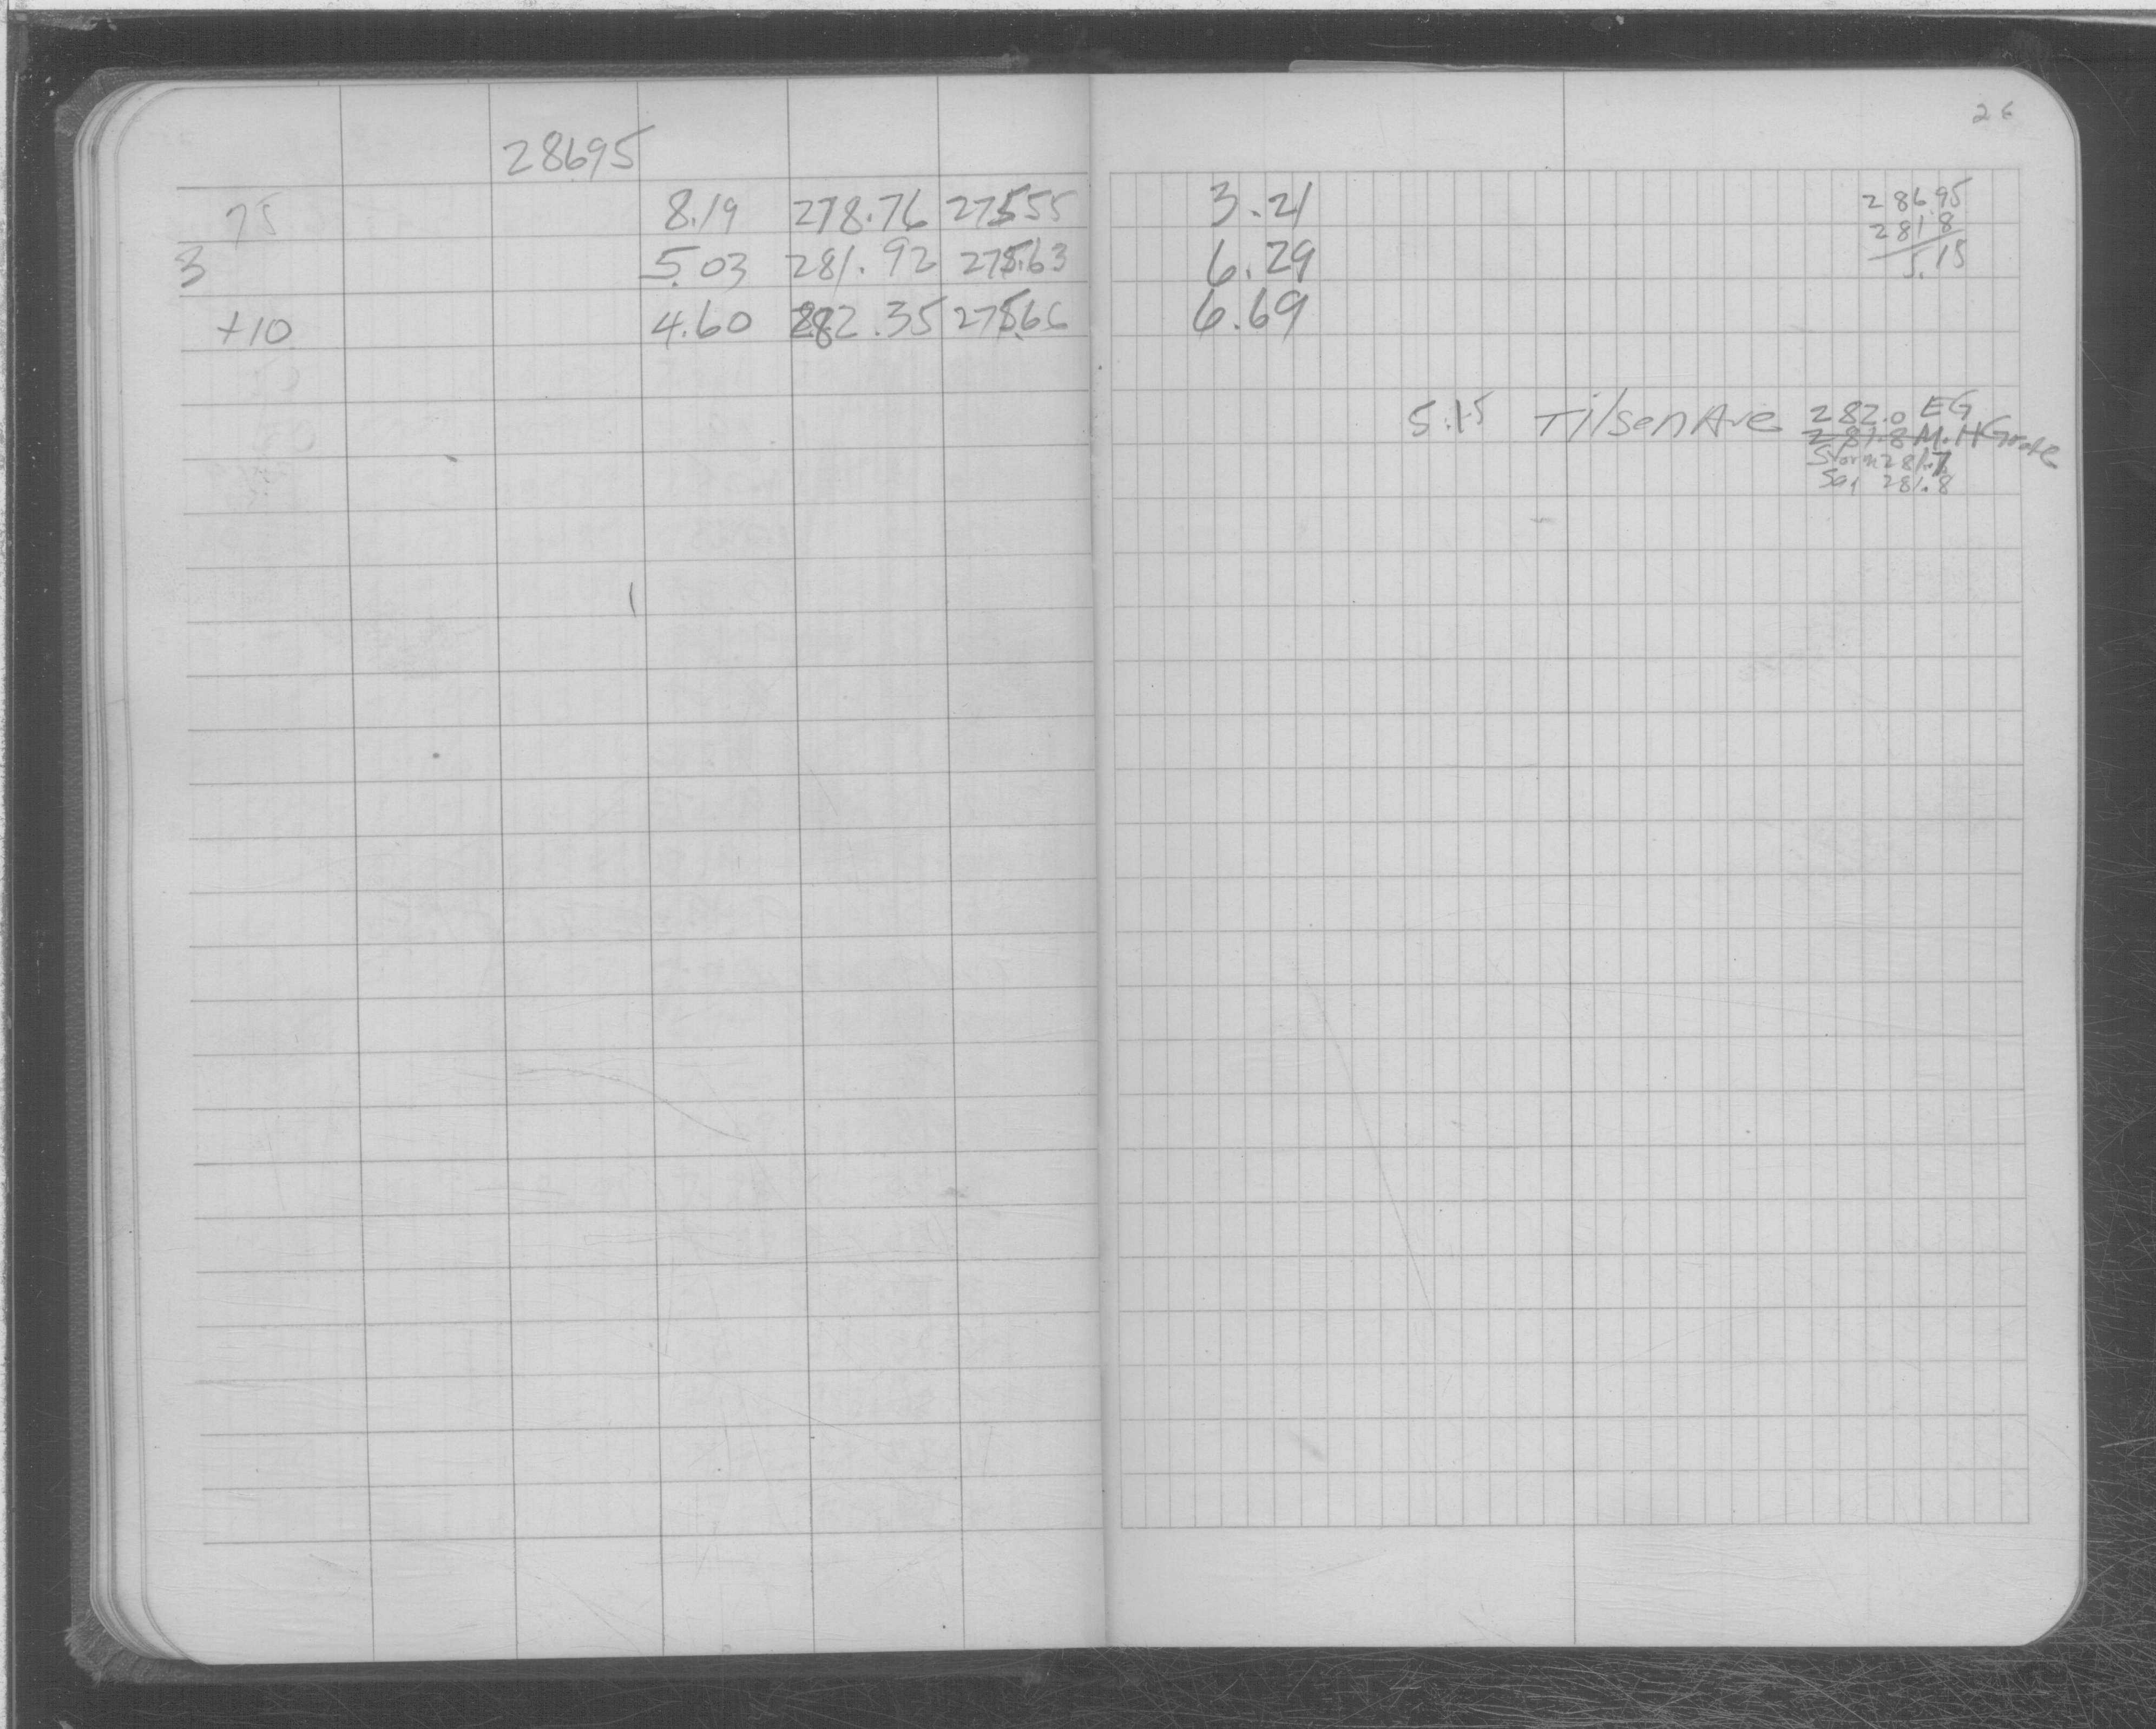 26
28695
75 8.19 278.76 275.55 3.21
3 5.03 281.92 275.63 6.29
+10 4.60 282.35 275.66 6.69
28695
281 8
5.15
5.15 Tilsen Ave 282.0 EG
281.8 M.H Grate
Storm 281.7
Say 281.8